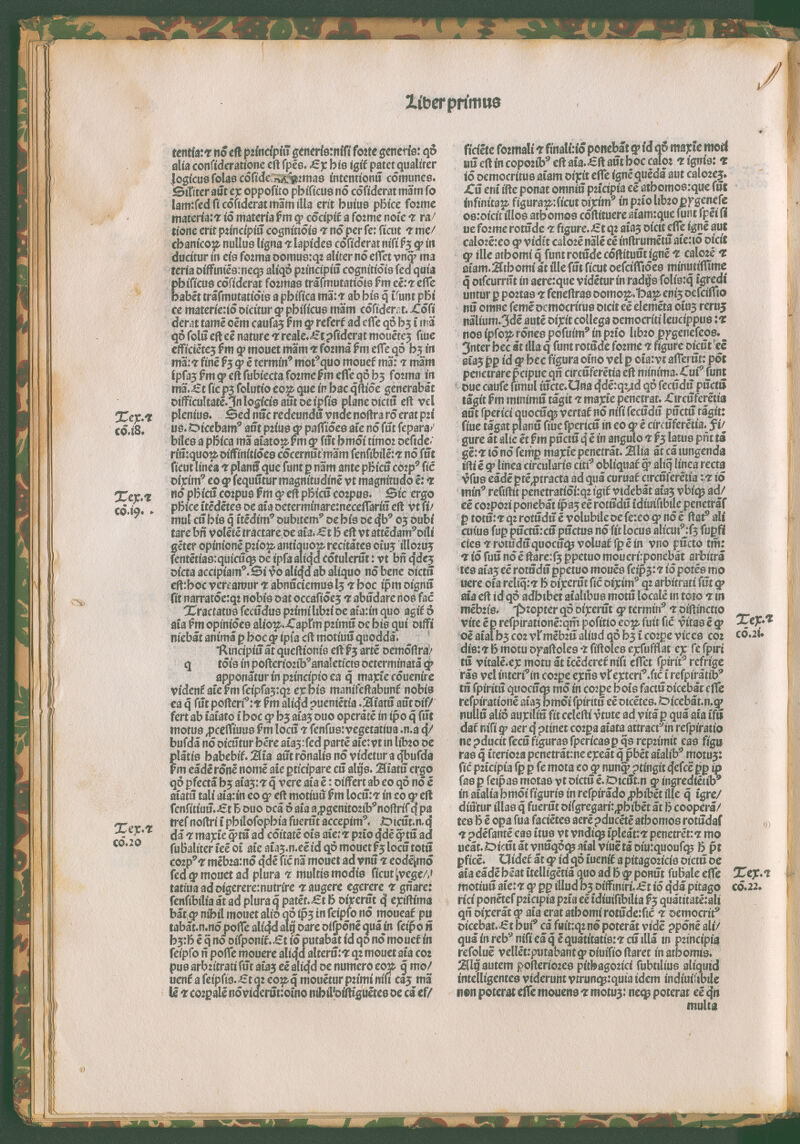 Liber primus
tentia:⁊ nō est principiū generis:nisi forte generis: qd̄
alia consideratione est spēs. Ex his igit̄ patet qualiter
logicus solas cōside rmas intentionū cōmunes.
Siliter aūt ex opposito phisicus nō cōsiderat mām so
lam:sed si cōsiderat mām illa erit huius phice forme
materia:⁊ iō materia ẜm ꝙ cōcipit̄ a forme noīe ⁊ ra/
tione erit principiū cognitiōis ⁊ nō per se: sicut ⁊ me/
chanicoꝝ nullus ligna ⁊ lapides cōsiderat nisi ẜꝫ ꝙ in
ducitur in eis forma domus:qꝛ aliter nō esset vnqᷓ ma
teria diffiniēs:neqꝫ aliqd̄ principiū cognitiōis sed quia
phisicus cōsiderat formas trāsmutatiōis ẜm eē:⁊ esse
habēt trāsmutatiōis a phisica mā:⁊ ab his q̄ īsunt phi
ce materie:iō dicitur ꝙ phisicus mām cōsiderat. Cōsi
derat tamē oēm causaꝫ ẜm ꝙ refert̄ ad esse qd̄ hꝫ ī mā
qd̄ solū est eē nature ⁊ reale. Et ꝯsiderat mouētes siue
efficiētes ẜm ꝙ mouet mām ⁊ formā ẜm esse qd̄ hꝫ in
mā:⁊ finē ẜꝫ ꝙ ē terminꝰ motꝰ quo mouet̄ mā: ⁊ mām
ipsaꝫ ẜm ꝙ est subiecta forme ẜm esse qd̄ hꝫ forma in
mā. Et sic pꝫ solutio eoꝝ que in hac q̄stiōe generabāt
difficultatē. In logicis aūt de ipsis plane dictū est vel
plenius. Sed nūc redeundū vnde nostra rō erat pri
us. Dicebamꝰ aūt prius ꝙ passiōes aīe nō sūt separa/
biles a phica mā aīatoꝝ ẜm ꝙ sūt hmōi timor deside/
riū:quoꝝ diffinitiōes cōcernūt mām sensibilē:⁊ nō sūt
sicut linea ⁊ planū que sunt p nām ante phicū corpꝰ sic̄
diximꝰ eo ꝙ sequūtur magnitudinē vt magnitudo ē: ⁊
nō phicū corpus ẜm ꝙ est phicū corpus. Sic ergo
phice itēdētes de aīa determinare:necessariū est vt si/
mul cū his q̄ itēdimꝰ dubitemꝰ de his de q̄bꝰ oꝫ dubi
tare bn̄ volētē tractare de aīa. Et h̄ est vt attēdamꝰ dili
gēter opinionē prioꝝ antiquoꝝ recitātes oīuꝫ illoruꝫ
sentētias:quicūqꝫ de ipsa aliqd cōtulerūt: vt bn̄ qdeꝫ
dicta accipiamꝰ. Si v̄o aliqd ab aliquo nō bene dictū
est:hoc vereamur ⁊ abnūciemus lꝫ ⁊ hoc ip̄m dignū
sit narratōe:qꝛ nobis dat occasiōeꝫ ⁊ abūdare nos fac̄
Tractatus secūdus primi libri de aīa:in quo agit̄ ō
aīa ẜm opiniōes alioꝝ. Cap̄lm primū de his qui diffi
niebāt animā p hoc ꝙ ip̄a est motiuū quoddā.
Rincipiū āt questionis est ẜꝫ artē demōstra/
q tōis in posterioribꝰ analeticis determinatā ꝙ
apponātur in principio ea q̄ maxīe cōuenire
vident̄ aīe ẜm seipsaꝫ:qꝛ ex his manifestabunt̄ nobis
ea q̄ sūt posteriꝰ:⁊ ẜm aliqd ꝯueniētia. Aīatū aūt dif/
fert ab īaīato ī hoc ꝙ hꝫ aīaꝫ duo operātē in ip̄o q̄ sūt
motus ꝓcessiuus ẜm locū ⁊ sensus:vegetatiua .n.a q̄/
busdā nō dicūtur hēre aīaꝫ:sed partē aīe:vt in libro de
plātis habebit̄. Aīa aūt rōnalis nō videtur a q̄busda
ẜm eādē rōnē nomē aīe pticipare cū alijs. Aīatū ergo
qd̄ ꝑfectā hꝫ aīaꝫ:⁊ q̄ vere aīa ē : differt ab eo qd̄ nō ē
aīatū tali aīa:in eo ꝙ est motiuū ẜm locū:⁊ in eo ꝙ est
sensitiuū. Et h̄ duo dēa ō aīa a ꝓgenitoribꝰ nostris q̄ pa
tres nostri ī philosophia fuerūt accepimꝰ. Dicūt.n.q̄
dā ⁊ maxīe q̄tū ad cōitatē oīs aīe:⁊ prīo qdē q̄tū ad
subaliter īceē oī aīe aīaꝫ.n.eē id qd̄ mouet ẜꝫ locū totū
corpꝰ ⁊ mēbra:nō qdē sic̄ nā mouet ad vnū ⁊ eodē mō
sed ꝙ mouet ad plura ⁊ multis modis sicut vege/
tatiua ad digerere:nutrire ⁊ augere egerere ⁊ gn̄are:
sensibilia āt ad plura q̄ patēt. Et h̄ dixerūt q̄ existima
bāt ꝙ nihil mouet aliō qd̄ ip̄ꝫ in seipso nō moueat̄ pu
tabāt.n.nō posse aliqd alij dare dispōnē quā in seip̄o n̄
hꝫ:h̄ ē q̄ nō disponit̄. Et iō putabāt id qd̄ nō mouet̄ in
seipso n̄ posse mouere aliqd alterū:⁊ qꝛ mouet aīa cor
pus arbitrati sūt aīaꝫ eē aliqd de numero eoꝝ q̄ mo/
uent̄ a seipsis. Et qꝛ eoꝝ q̄ mouētur primi nisi cāꝫ mā
lē ⁊ corpalē nō viderūt:oīno nihil distīguētes de cā ef/
Tex.⁊
cō.18.
Tex.⁊
cō.19.
Tex.⁊
cō.20
ficiēte formali ⁊ finali:iō ponebāt ꝙ id qd̄ maxīe moti
uū est in coporibꝰ est aīa. Est aūt hoc calor ⁊ ignis: ⁊
iō democritus aīam dixit esse ignē quēdā aut calorez.
Cū eni iste ponat omniū prīcipia eē athomos:que sūt
infinitaꝝ figuraꝝ:sicut diximꝰ in prīo libro ꝑygenese
os:dicit illos athomos cōstituere aīam:que sunt spēi si
ue forme rotūde ⁊ figure. Et qꝛ aīaꝫ dicit esse ignē aut
calorē:eo ꝙ vidit calorē nālē eē instrumētū aīe:iō dicit
ꝙ ille athomi q̄ sunt rotūde cōstitūūt ignē ⁊ calorē ⁊
aīam. Athomi āt ille sūt sicut descissiōes minutissime
q̄ discurrūt in aere:que vidētur in radijs solis:q̄ īgredi
untur p portas ⁊ fenestras domoꝝ. Haꝝ eniꝫ descissio
nū omne semē democritus dicit eē elemēta oīuꝫ reruꝫ
nālium. Idē autē dixit collega democriti leucippus :⁊
nos ipsoꝝ rōnes posuimꝰ in prīo libro ꝑygeneseos.
Inter hec āt illa q̄ sunt rotūde forme ⁊ figure dicūt eē
aīaꝫ ꝓp id ꝙ hec figura oīno vel p oīa:vt asserūt: pōt
penetrare p̄cipue qn̄ circūferētia est minima. Cuiꝰ sunt
due cause simul iūcte. Una qdē:qꝛ id qd̄ secūdū pūctū
tāgit ẜm minimū tāgit ⁊ maxīe penetrat. Circūferētia
aūt sperici quocūqꝫ vertat̄ nō nisi secūdū pūctū tāgit:
siue tāgat planū siue spericū in eo ꝙ ē circūferētia. Fi/
gure āt alie ēt ẜm pūctū q̄ ē in angulo ⁊ ẜꝫ latus pn̄t tā
gē: ⁊ iō nō semp maxīe penetrāt. Alia āt cā iungenda
isti ē ꝙ linea circularis citiꝰ obliquat̄ q̄ aliq̄ linea recta
ꝟsus eādē ptē ꝓtracta ad quā curuat̄ circūferētia :⁊ iō
minꝰ resistit penetratiōi:qꝛ igit̄ videbāt aīaꝫ vbiqꝫ ad/
eē corpori ponebāt ip̄aꝫ eē rotūdū īdiuisibile penetrās
p totū:⁊ qꝛ rotūdū ē volubile de se:eo ꝙ nō ē statꝰ ali
cuius sup pūctū:cū pūctus nō sit locus alicuiꝰ:ꝫ supfi
cies ⁊ rotūdū quocūqꝫ voluat̄ sp ē in vno pūcto tm̄:
⁊ iō suū nō ē stare:ꝫ ꝑpetuo moueri:ponebāt arbitrā
tes aīaꝫ eē rotūdū ꝑpetuo mouēs seip̄ꝫ:⁊ iō potēs mo
uere oīa reliq̄:⁊ h̄ dixerūt sic̄ diximꝰ qꝛ arbitrati sūt ꝙ
aīa est id qd̄ adhibet aīalibus motū localē in toto ⁊ in
mēbris. Propter qd̄ dixerūt ꝙ terminꝰ ⁊ distinctio
vite ē p respirationē:qm̄ positio eoꝝ fuit sic̄ v̄itas ē ꝙ
oē aīal hꝫ cor vl̓ mēbrū aliud qd̄ hꝫ ī corpe vices cor
dis:⁊ h̄ motu dyastoles ⁊ sistoles exsufflat ex se spiri
tū vitalē.ex motu āt īcēderet̄ nisi esset spiritꝰ refrige
rās vel interiꝰ in corpe exn̄s vl̓ exteriꝰ.sic̄ ī respirātibꝰ
tn̄ spiritū quocūqꝫ mō in corpe hoīs factū dicebāt esse
respirationē aīaꝫ hmōi spiritū eē dicētes. Dicebāt.n.ꝙ
nullū aliō auxiliū sit celesti v̄tute ad vitā p quā aīa īsū
dat̄ nisi ꝙ aer q̄ ꝯtinet corpa aīata attractꝰ in respiratio
ne ꝯducit secū figuras spericas p q̄s reprimit eas figu
ras q̄ īteriora penetrāt:ne exeāt q̄ p̄bēt aīalibꝰ motuꝫ:
sic̄ prīcipia sp p se mota eo ꝙ nunqᷓ ꝯtingit q̄escē ꝓp ip
sas p seipsas motas vt dictū ē. Dicūt.n ꝙ ingrediētibꝰ
in aīalia hmōi figuris in respirādo ꝓhibēt ille q̄ īgre/
diūtur illas q̄ fuerūt disgregari:ꝓhibēt āt h̄ cooperā/
tes h̄ ē opa sua faciētes aerē ꝯducētē athomos rotūdas
⁊ ꝯdēsantē eas ītus vt vndiqꝫ īpleāt:⁊ penetrēt:⁊ mo
ueāt. Dicūt āt vnūqd̄qꝫ aīal viuē tā diu:quousqꝫ h̄ p̄t
ꝑficē. Uidet̄ āt ꝙ id qd̄ īuenit̄ a pitagoricis dictū de
aīa eādē hēat ītelligētiā quo ad h̄ ꝙ ponūt subale esse
motiuū aīe:⁊ ꝙ ꝓp illud hꝫ diffiniri. Et iō qdā pitago
rici ponētes prīcipia prīa eē īdiuisibilia ẜꝫ quātitatē:ali
qn̄ dixerūt ꝙ aīa erāt athomi rotūde:sic̄ ⁊ democritꝰ
dicebat. Et huiꝰ cā fuit:qꝛ nō poterāt vidē ꝯpōnē ali/
quā in rebꝰ nisi eā q̄ ē quātitatis:⁊ cū illā in prīncipia
resoluē vellēt:putabant ꝙ diuisio staret in athomis.
Alij autem posteriores pithagorici subtilius aliquid
intelligentes viderunt vtrunqꝫ:quia idem indiuisibile
non poterat esse mouens ⁊ motuꝫ: neqꝫ poterat eē q̄n
multa
Tex.⁊
cō.21.
Tex.⁊
cō.22.